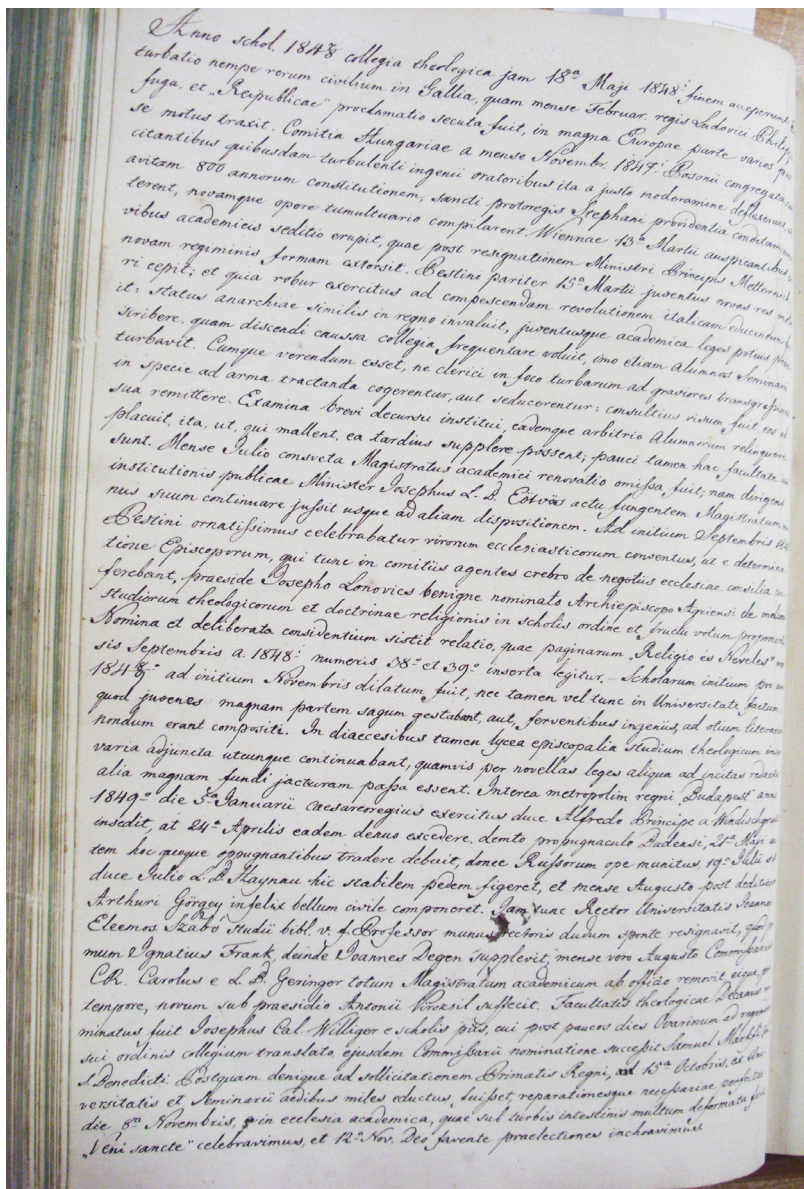 Anno schol. 1847/8 collegia theologica jam 18a Maji 1848i finem acceperunt;
turbatio nempe rerum civilium in Gallia, quam mense Februar. regis Ludovici Philippi
fuga, et „Reipublicae" proclamatio secuta fuit, in magna Europae parte varios
se motus traxit. Comitia Hungariae a mense Novembr. 1847i Posonii congregata,
citantibus quibusdam turbulenti ingenii oratoribus ita a justo moderamine defluxerunt,
avitam 800 annorum constitutionem, sancti protoregis Stephani providentia conditam,
terent, novamque opere tumultuario compilarent. Viennae 13a Martii auspicantibus
vibus academicis seditio erupit, quae post resignationem Ministri Principis Metternich
novam regiminis formam extorsit. Pestini pariter 15a Martii juventus novas res
ri cepit; et quia robur exercitus ad compescendam revolutionem italicam educendum
it: status anarchiae similis in regno invaluit, juventusque academica leges potius
scribere, quam discendi caussa collegia frequentare voluit, imo etiam Alumnos Seminarii
turbavit. Cumque verendum esset, ne clerici in foco turbarum ad graviores transgressiones
in specie ad arma tractanda cogerentur, aut seducerentur: consultius visum fuit, eos ad
sua remittere. Examina brevi decursu institui, eademque arbitrio Alumnorum relinquere
placuit, ita, ut, qui mallent, ea tardius supplere possent; pauci tamen hac facultate
sunt. Mense Julio consveta Magistratus academici renovatio omissa fuit; nam dirigens
institutionis publicae Minister Josephus L. B. Eötvös actu fungentem Magistratum
nus suum continuare jussit usque ad aliam dispositionem. Ad initium Septembris
Pestini ornatissimus celebrabatur virorum ecclesiasticorum conventus, ut e determina
tione Episcoporum, qui tunc in comitiis agentes crebro de negotiis ecclesiae consilia
ferebant, praeside Josepho Lonovics benigne nominato Archiepiscopo Agriensi de
studiorum theologicorum et doctrinae religionis in scholis ordine et fructu votum
Nomina et deliberata considentium sistit relatio, quae paginarum „Religio és Nevelés"
sis Septembris a. 1848i numeris 38o et 39o inserta legitur. – Scholarum initium pro
1848/9o ad initium Novembris dilatum fuit, nec tamen vel tunc in Universitate factum
quod juvenes magnam partem sagum gestabant, aut, ferventibus ingeniis, ad otium literarium
nondum erant compositi. In diaecesibus tamen lycea episcopalia studium theologicum
varia adjuncta utcunque continuabant, quamvis per novellas leges aliqua ad incitas redacta
alia magnam fundi jacturam passa essent. Interea metropolim regni Budapest anno
1849o die 5ta Januarii caesareoregius exercitus duce Alfredo Principe a Windischgrätz
insedit, at 24a Aprilis eadem denuo excedere, demto propugnaculo Budensi, 21a Maji
tem hoc quoque oppugnantibus tradere debuit, donec Russorum ope munitus, 19a Julii
duce Julio L. B. Haynau hic stabilem pedem figeret, et mense Augusto post deditionem
Arthuri Görgey infelix bellum civile componeret. Jam tunc Rector Universitatis Joannes
Eleemos. Szabó studii bibl. v. f. Professor munus rectoris dudum sponte resignavit, quod
mum Ignatius Frank, deinde Joannes Degen supplevit, mense vero Augusto Commissarius
CR. Carolus e L. B. Geringer totum Magistratum academicum ab officio removit, eique,
tempore, novum sub praesidio Antonii Virozsil suffecit. Facultatis theologicae Decanus
minatus fuit Josephus Cal. Williger e scholis piis, cui post paucos dies Ovarinum ad regendum
sui ordinis collegium translato, ejusdem Commissarii nominatione successit Samuel Márkfi
S. Benedicti. Postquam denique ad sollicitationem Primatis Regni, ad 15a Octobris, ex Uni-
versitatis et Seminarii aedibus miles eductus, fuisset, reparationesque necessariae perfectae
die 8a Novembris, in ecclesia academica, quae sub turbis intestinis multum deformata
„Veni sancte" celebravimus, et 12a Nov. Deo favente praelectiones inchoavimus.